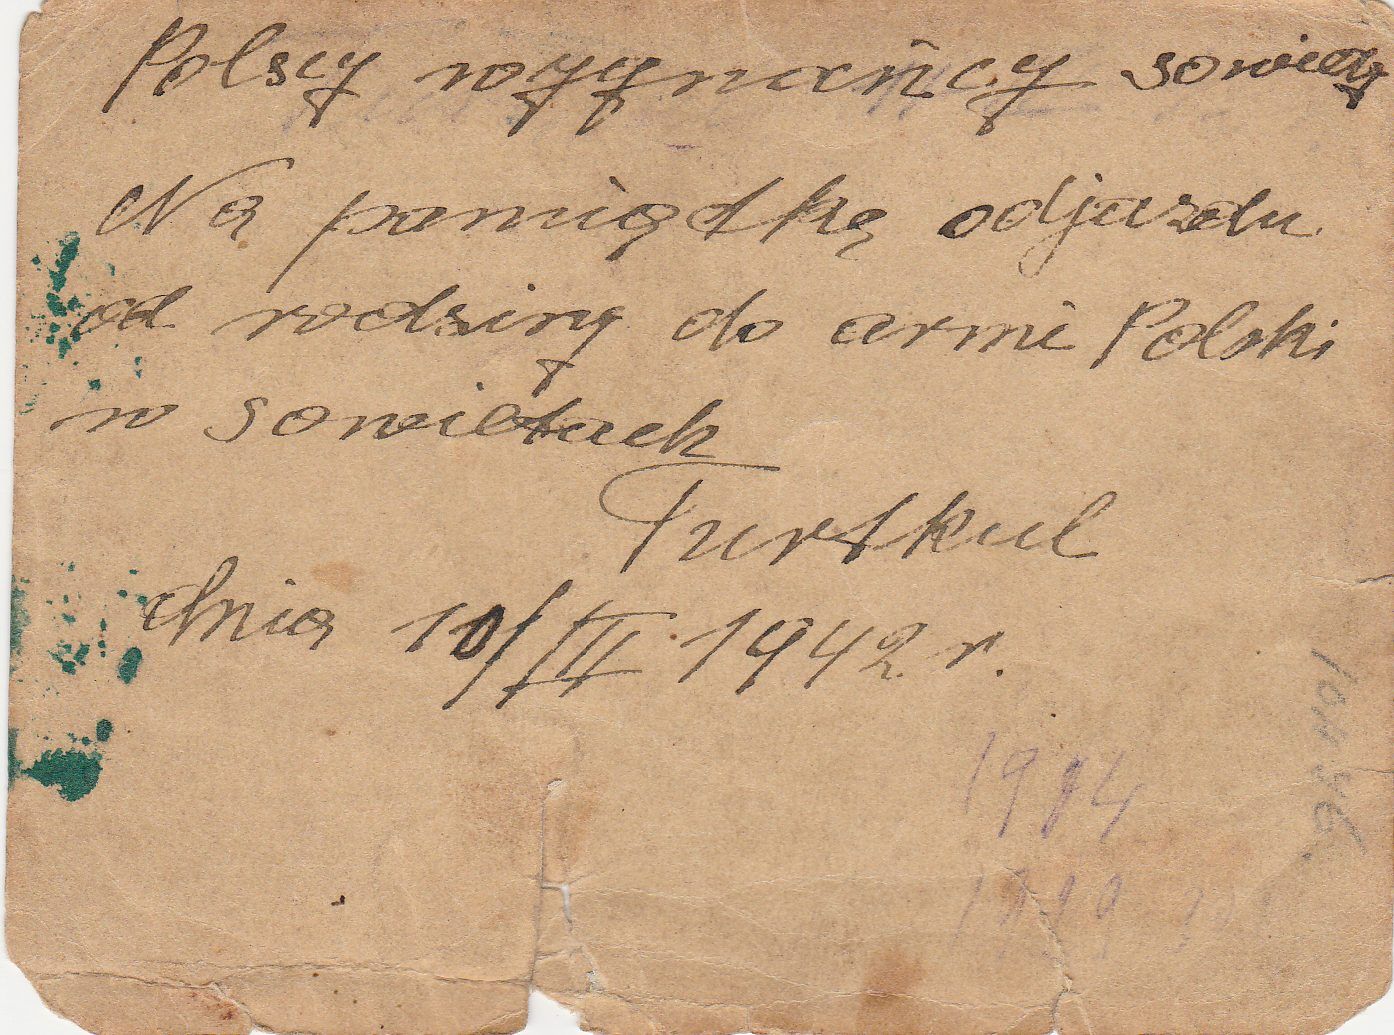 Polscy wygnańcy sowiecy
Na pamiątkę odjazdu
od rodziny do armi Polski
w sowietach
Turtkul
dnia 10/III 1942 r.
1914